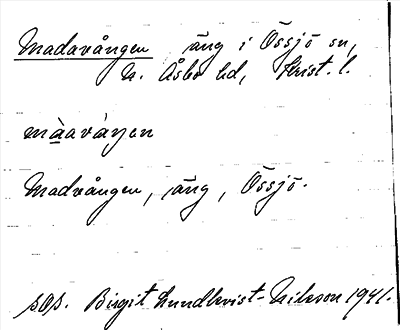 Madavången äng i Össjö sn,
N. Åsbo hd, Krist. l.
màavàŋen
Madvången, äng, Össjö.
sOp. Birgit Lundkvist-Nilsson 1941.